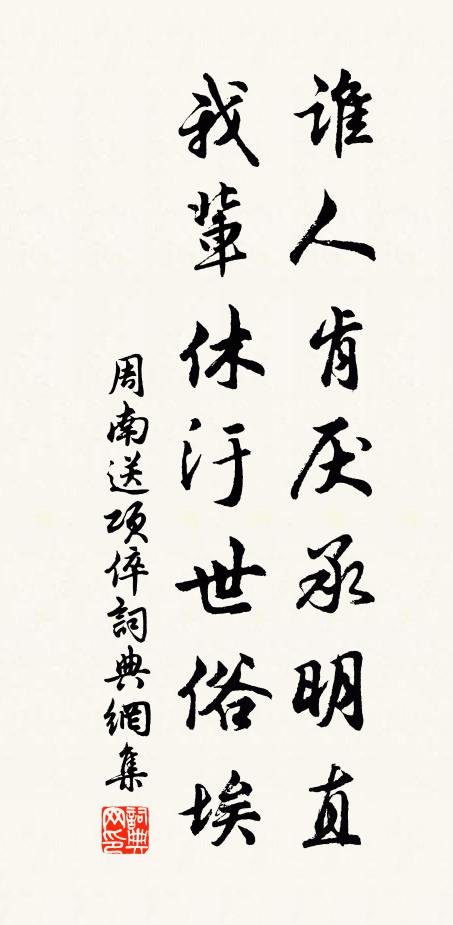 谁人肯厌承明直
我辈休汙世俗埃
周南送项倅詞典網集
詞典网印